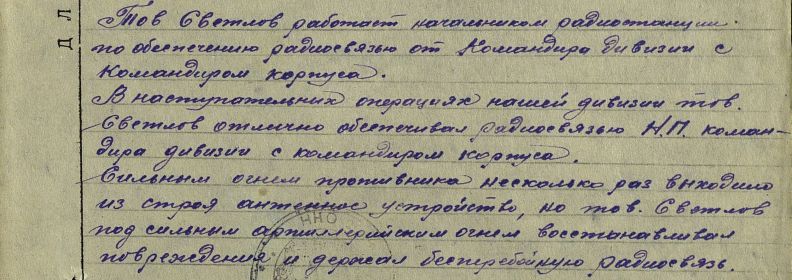 Тов Светлов работает начальником радиостанции
по обеспечению радиосвязью от Командира дивизии с
Командиром корпуса.
В наступательных операциях нашей дивизии тов.
Светлов отлично обеспечивал радиосвязью Н.П. коман-
дира дивизии с командиром корпуса.
Сильным огнем противника несколько раз выходило
из строя антенное устройство, но тов. Светлов
под сильным артиллерийским огнем восстанавливал
повреждения и держал бесперебойную радиосвязь.
Д Л